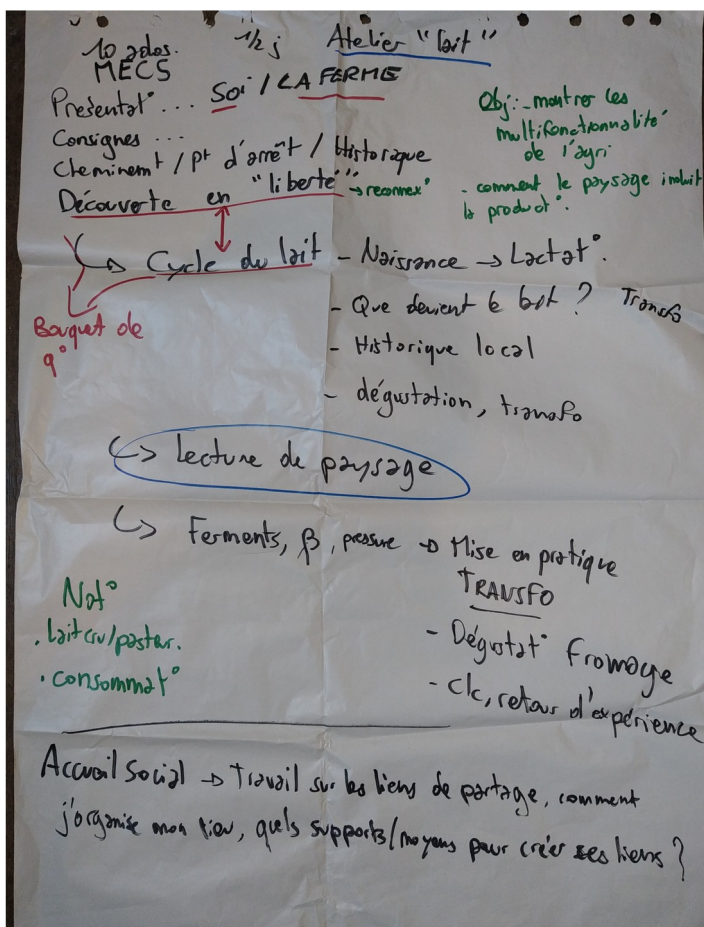 10 ados. 1/2 j Atelier "lait"
MECS
Présentat° ... Soi / LA FERME
Consignes ...
Cheminemt / Pt d'arrêt / Historique
Découverte en "liberté" → reconnex°
Obj: - montrer les
multifonctionnalité
de l'agri
- comment le paysage induit
la product°.
↳ Cycle du lait - Naissance → Lactat°.
Bouquet de
q°
- Que devient le lait ? Transfo
- Historique local
- dégustation, transfo
↳ Lecture de paysage
↳ Ferments, β, pressure → Mise en pratique
TRANSFO
- Dégustat° Fromage
- Clc, retour d'expérience
Not°
. Lait cru/pasteur.
. consommat°
Accueil Social → Travail sur les liens de partage, comment
j'organise mon lieu, quels supports/moyens pour créer ses liens ?